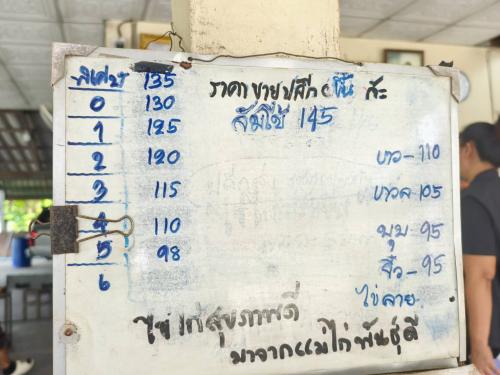 พิเศษ 135
0 130
1 125
2 120
3 115
4 110
5 98
6
ราคาขายปลีก ขึ้น ละ
ส้มโอ 145
ขาว-110
ขาวล 105
บุบ-95
จิ๋ว-95
ไข่ลาย
ไข่ไก่สุขภาพดี
มาจากแม่ไก่พันธุ์ดี